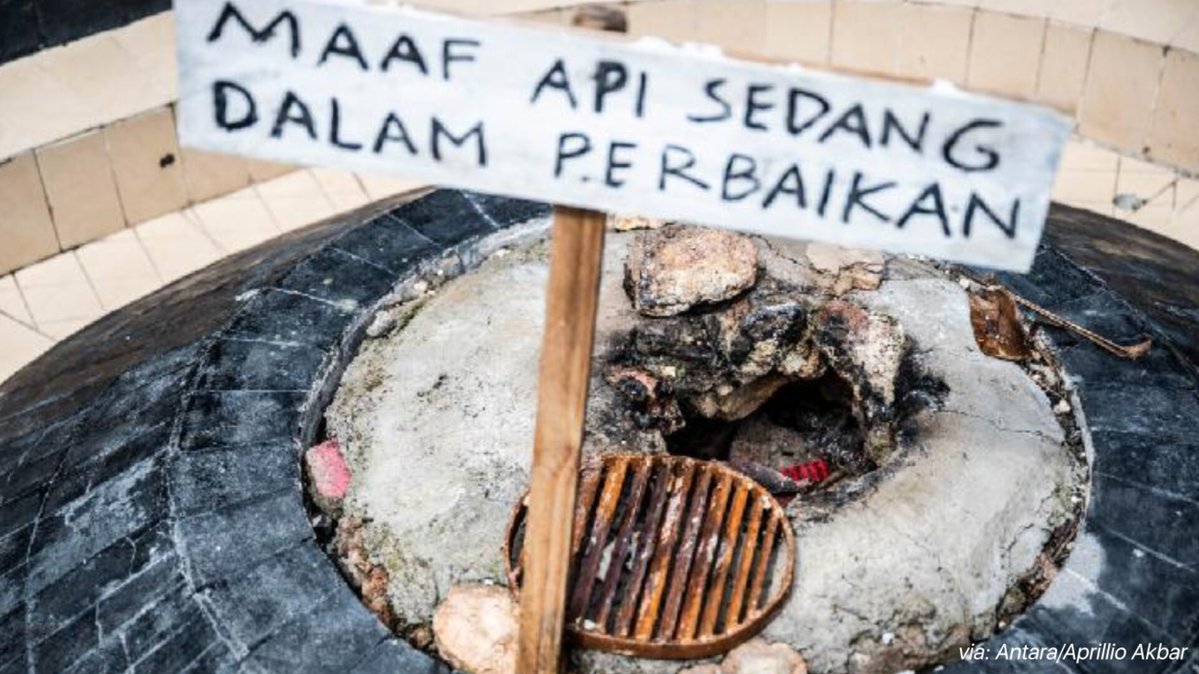 MAAF API SEDANG
DALAM PERBAIKAN
via: Antara/Aprillio Akbar